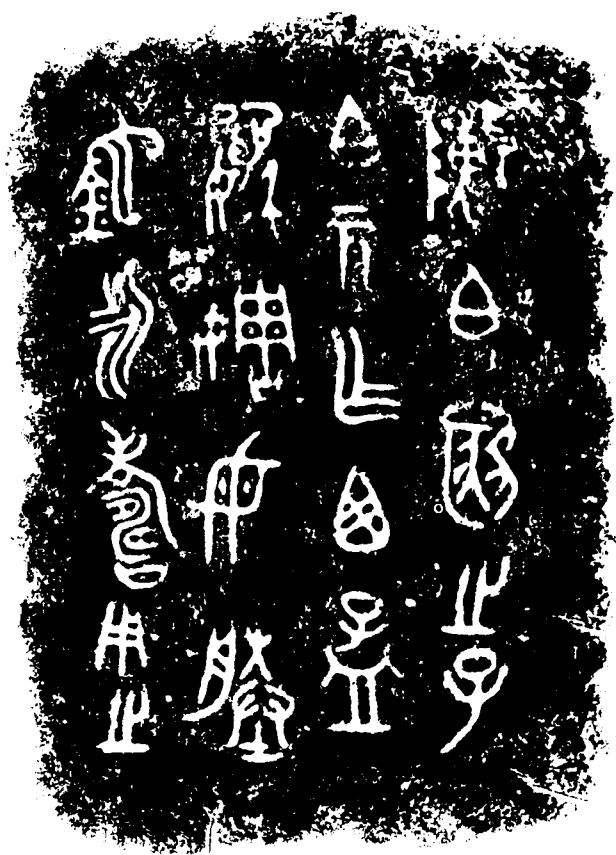 陳白之子
白元乍西孟
媯母塍
鉈永壽用之